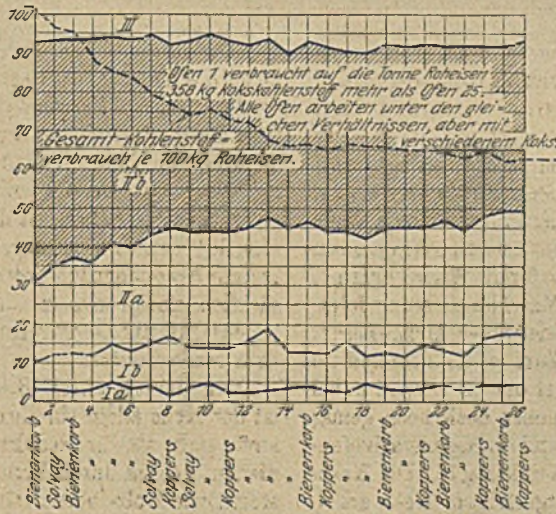 100
III
90
Ofen 1 verbraucht auf die Tonne Roheisen
80
358 kg Kokskohlenstoff mehr als Ofen 25.
Alle Öfen arbeiten unter den glei-
70
chen Verhältnissen, aber mit
Gesamt-Kohlenstoff-
verschiedenem Koks.
verbrauch je 100 kg Roheisen.
60
II b
50
40
30
II a
20
10
I b
I a
0
2 4 6 8 10 12 14 16 18 20 22 24 26
Bienenkorb
Solvay
Bienenkorb
"
"
"
Solvay
Koppers
Solvay
"
Koppers
"
"
"
Bienenkorb
Koppers
"
"
Bienenkorb
"
Koppers
Bienenkorb
"
Koppers
Bienenkorb
Koppers